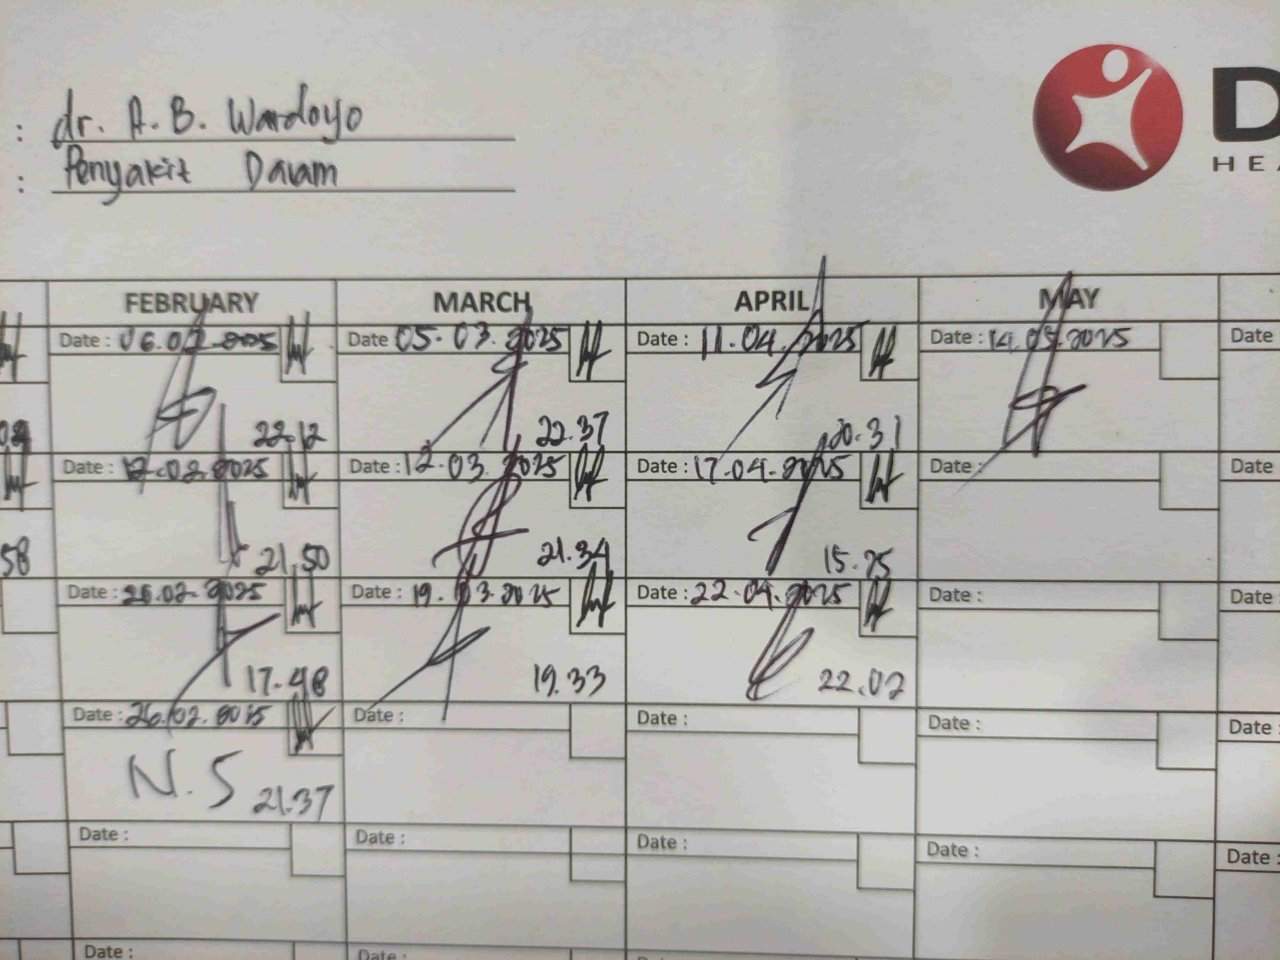 : dr. A. B. Wardoyo
: Penyakit Dalam
D
HEA
FEBRUARY MARCH APRIL MAY
Date : 06.02.2025 Date 05.03.2025 Date : 11.04.2025 Date : 14.05.2025 Date
22.12 22.37 20.31
Date : 12.02.2025 Date : 12.03.2025 Date : 17.04.2025 Date : Date
58 21.50 21.34 15.25
Date : 2025 Date : 19.03.2025 Date : 22.04.2025 Date : Date :
17.48 19.33 22.02
Date : 26.02.2025 Date : Date : Date : Date :
N.S 21.37
Date : Date : Date : Date : Date :
Date : Date : Date :